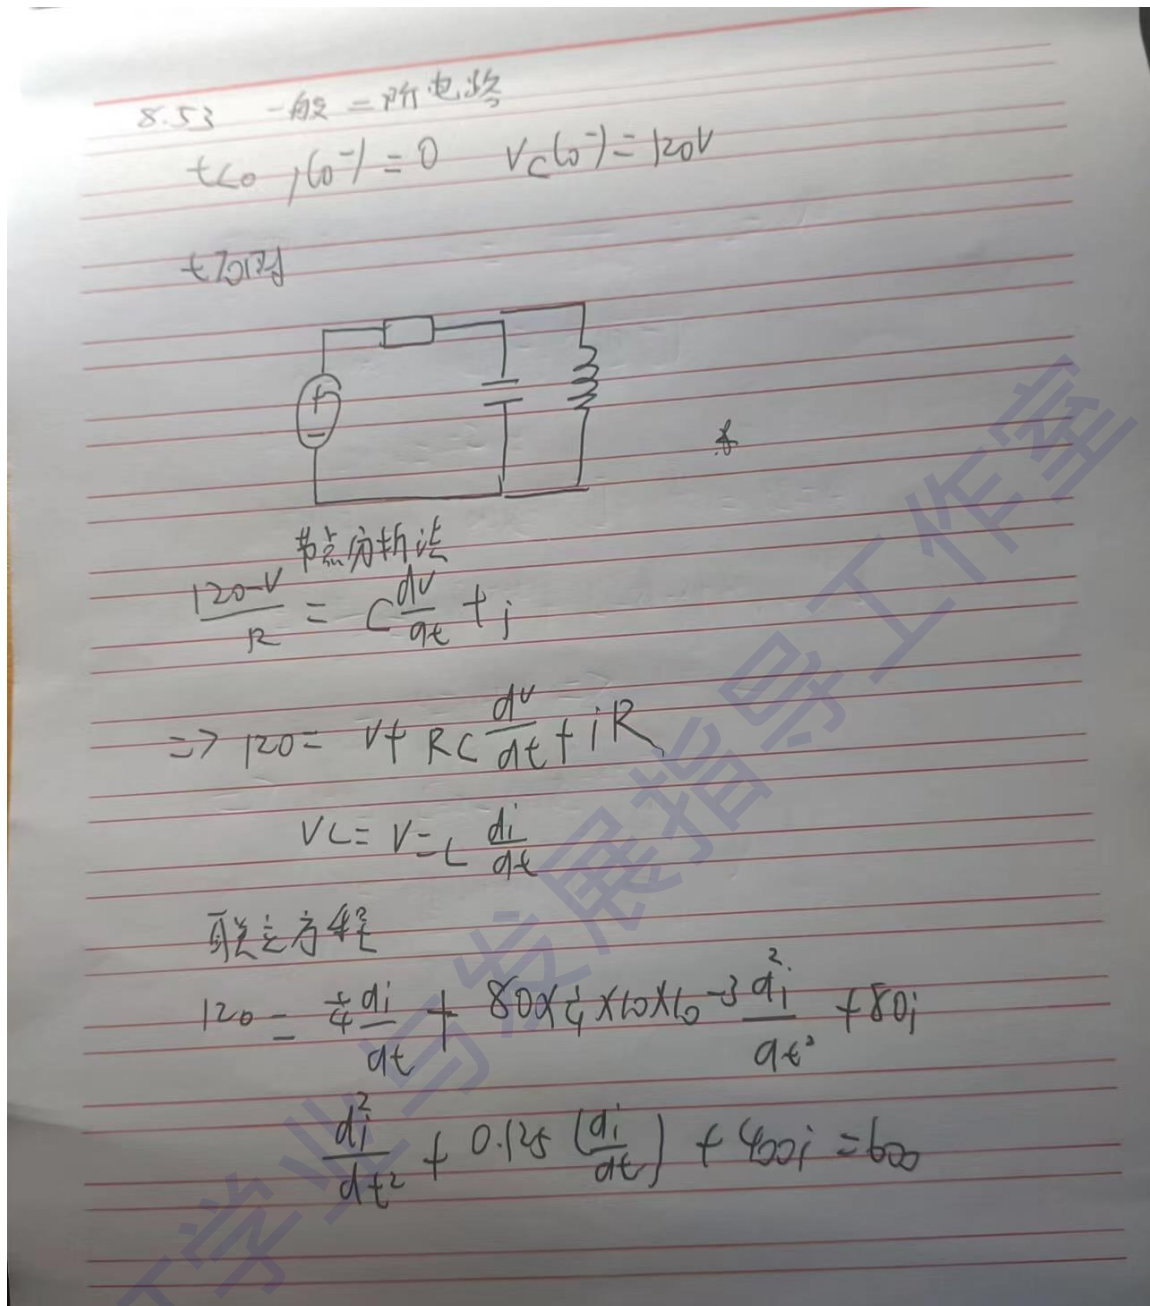 8.53 一般二阶电路
t<0 i(0⁻)=0 Vc(0⁻)=120V
t>0时
+
-
节点分析法
(120-V)/R = C dv/dt + i
=> 120 = V + RC dv/dt + iR
VL = V = L di/dt
联立方程
120 = 1/4 di/dt + 80×1/4×10×10⁻³ d²i/dt² + 80i
d²i/dt² + 0.125 (di/dt) + 400i = 600
学业与发展指导工作室